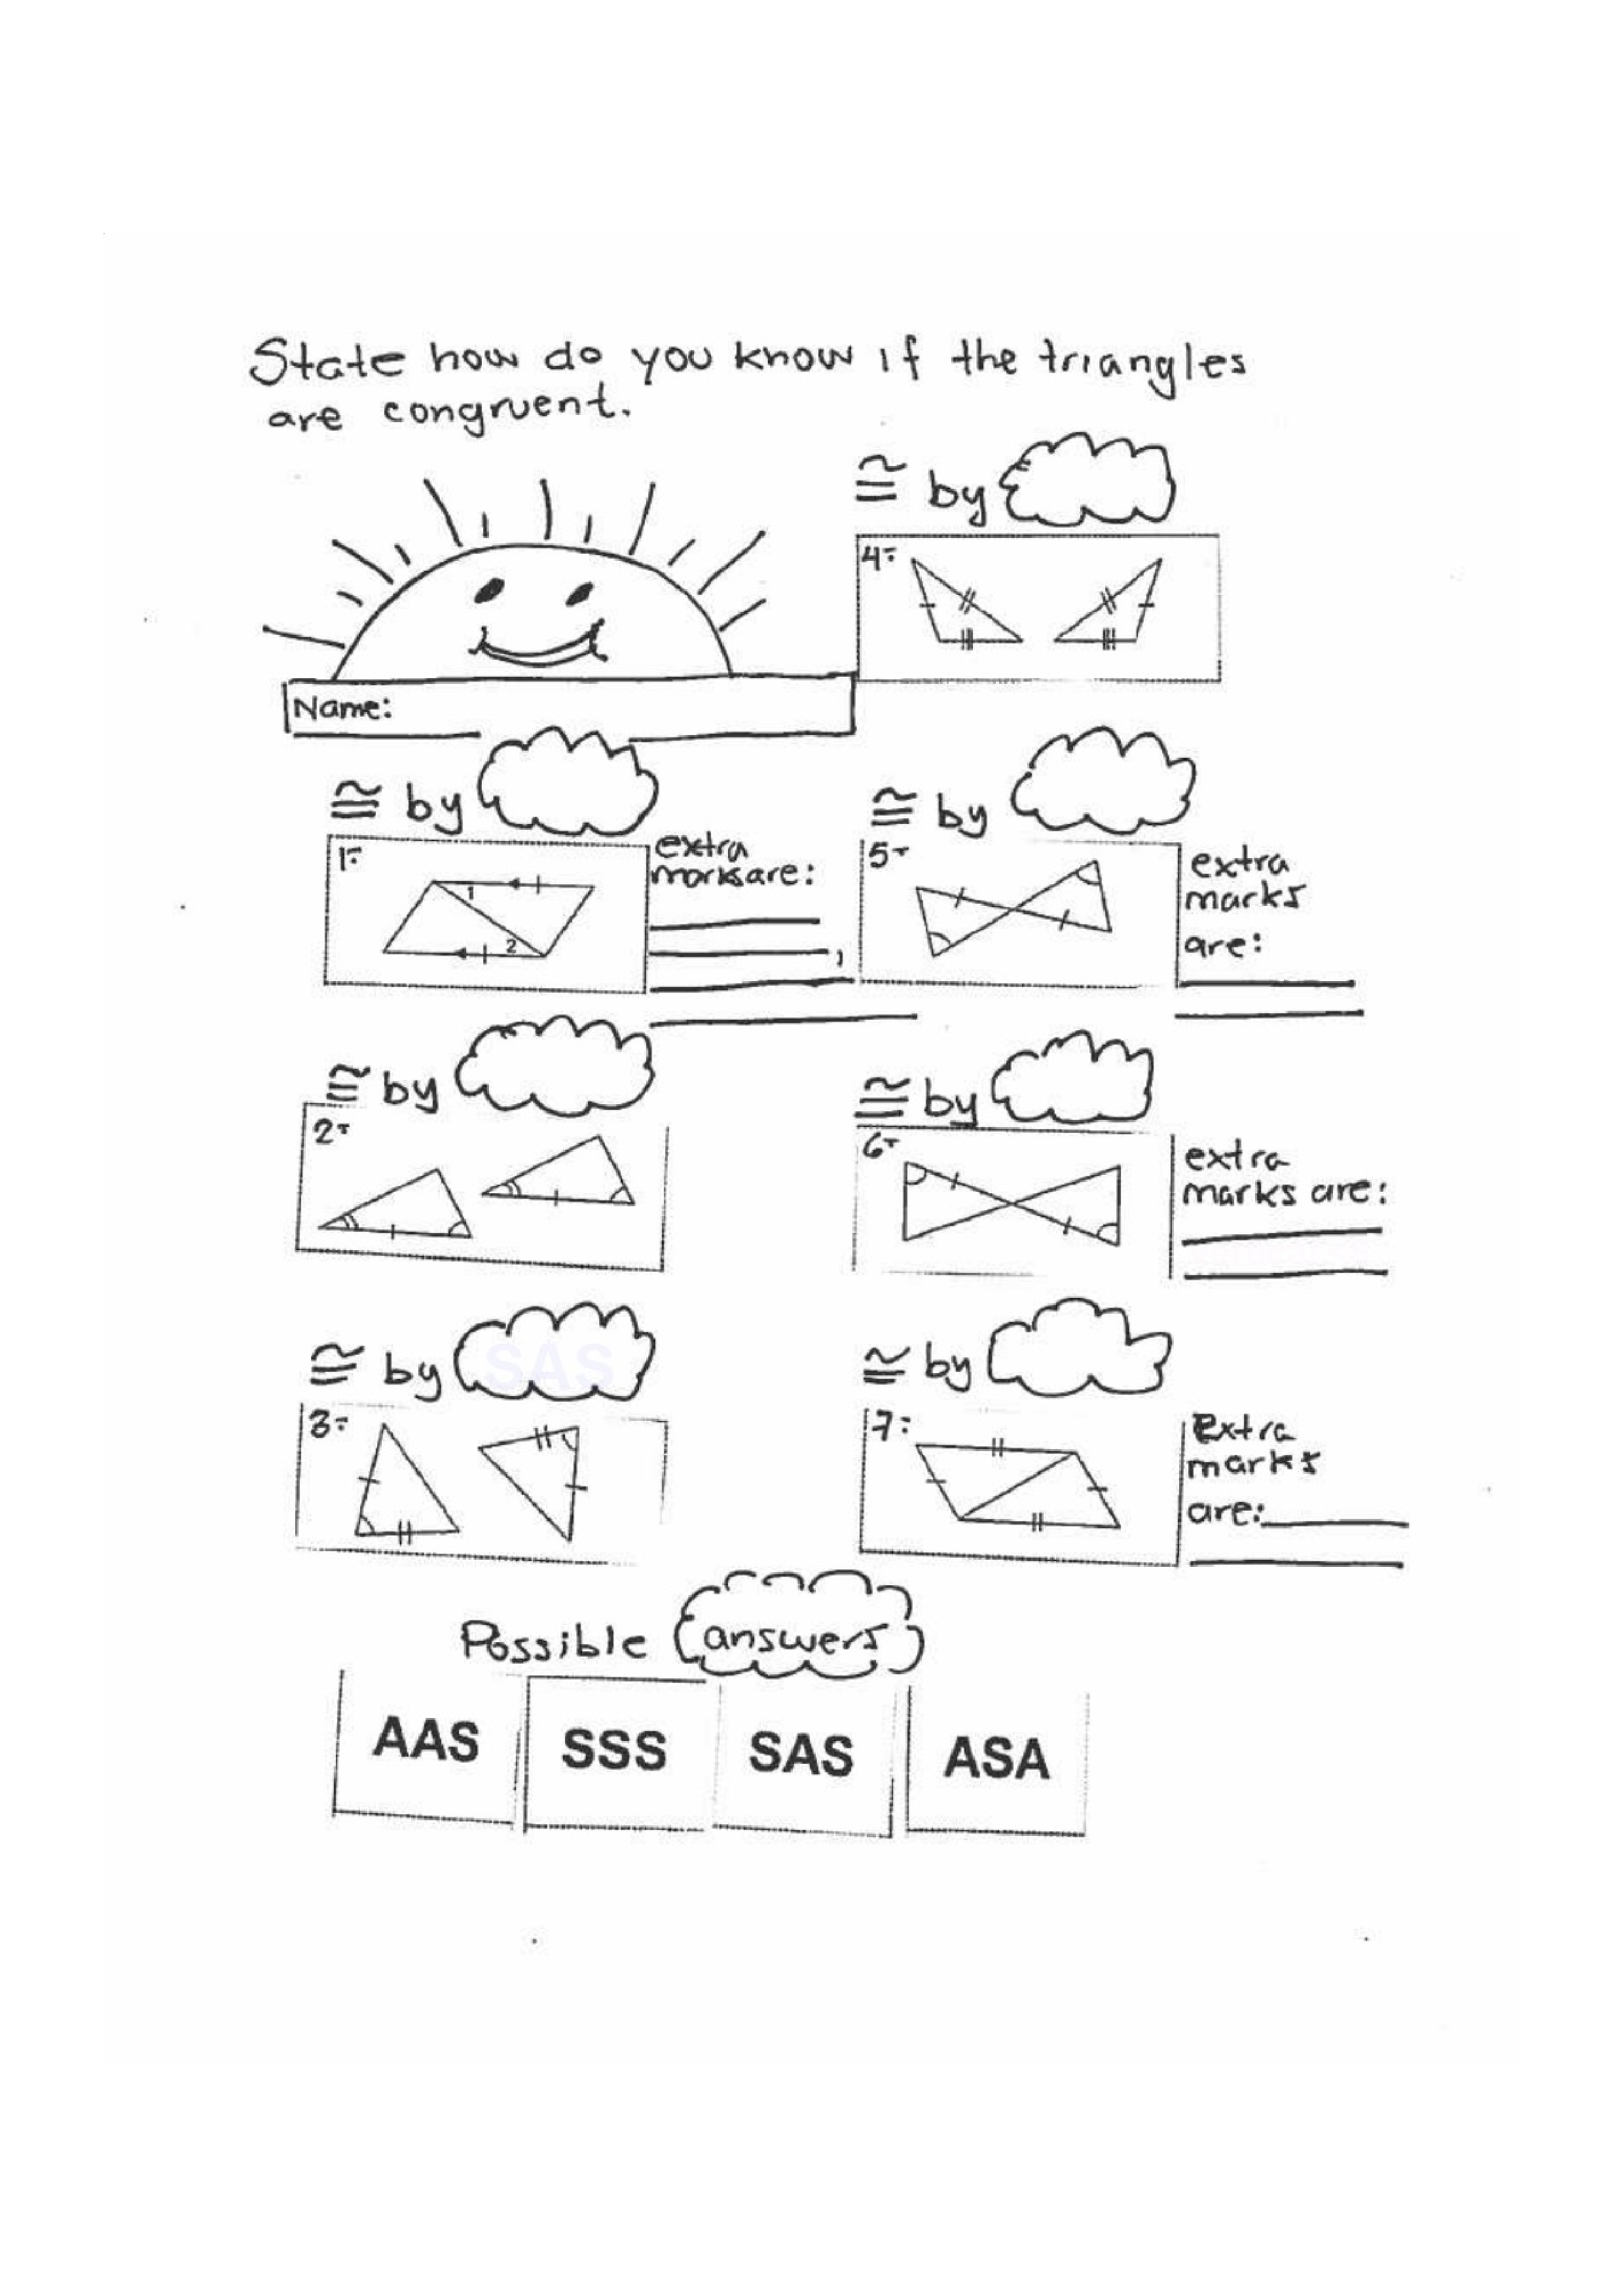 State how do you know if the triangles
are congruent.
≅ by
4-
Name:
≅ by
1-
1
2
extra
marks are:
,
≅ by
5-
extra
marks
are:
≅ by
2-
≅ by
6-
extra
marks are:
≅ by SAS
3-
≅ by
7-
Extra
marks
are:
Possible answers
AAS SSS SAS ASA